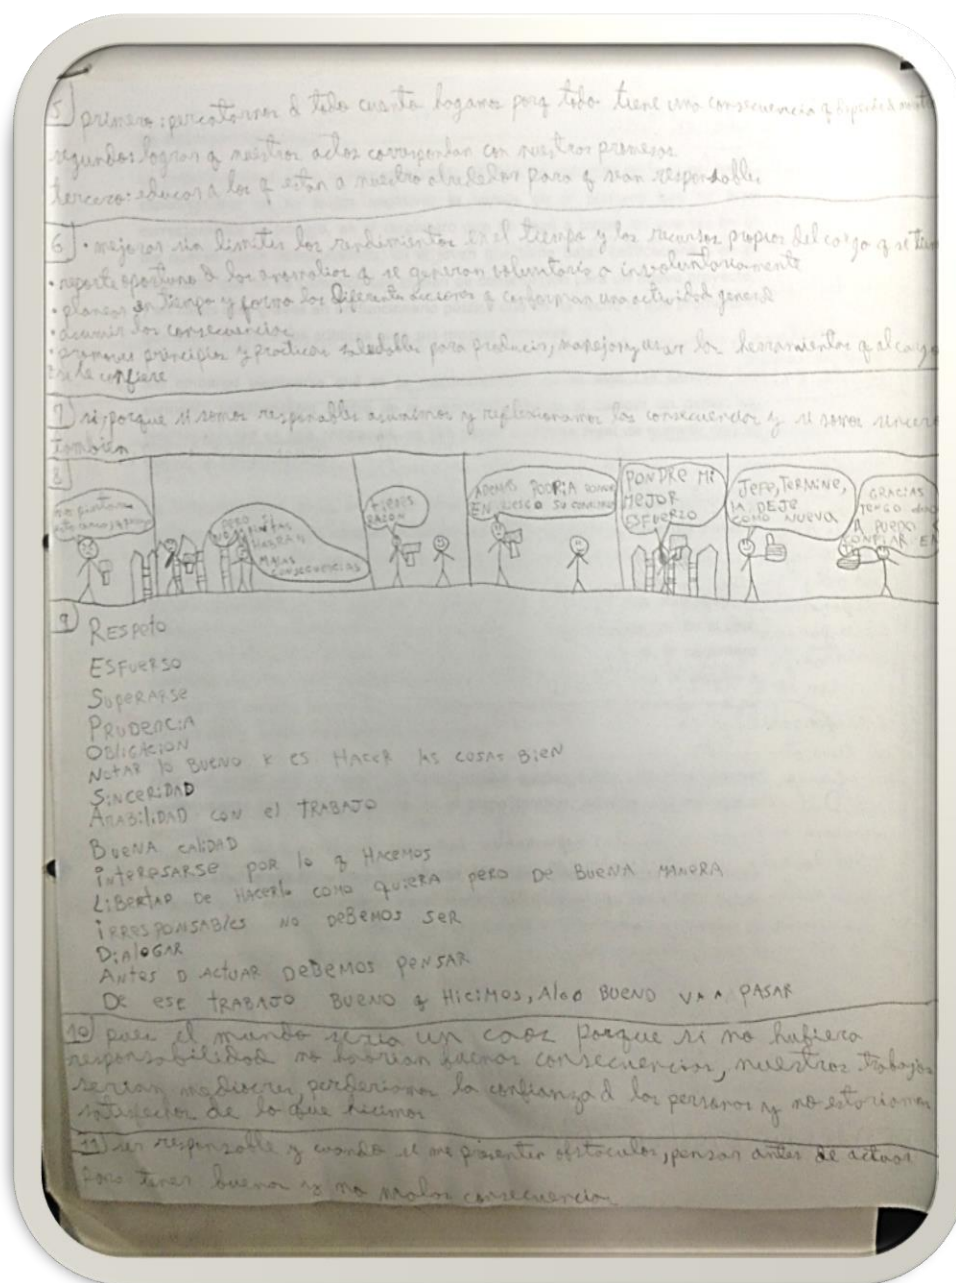 5) primero: percatarnos d todo cuanto hagamos porq todo tiene una consecuencia q depende d
segundo: lograr q nuestros actos correspondan con nuestras promesas.
tercero: educar a los q estan a nuestro alrededor para q sean responsables
6) • mejorar sin limites los rendimientos en el tiempo y los recursos propios del cargo q se
• reporte oportuno d las anomalias q se generan voluntaria o involuntariamente
• planear en tiempo y forma las diferentes acciones q conforman una actividad general
• asumir las consecuencias
• promover principios y practicas saludables para producir, manejar y usar las herramientas q al cargo
se le confiere
7) si, porque si somos responsables asumimos y reflexionamos las consecuencias y si somos
tambien
8)
PERO
HABRAN
MALAS
CONSECUENCIAS
tiENES
RAZON
ADEMAS PODRIA PONER
EN RIESGO SU
PONDRE MI
MEJOR
ESFUERZO
JEFE, TERMINE,
LA DEJE
COMO NUEVA
GRACIAS
TENGO
A PUEDO
CONFIAR EN
9) RESPETO
ESFUERSO
SUPERARSE
PRUDENCIA
OBLIGACION
NOTAR lo BUENO K ES HACER lAS COSAS BIEN
SINCERIDAD
AMABILIDAD CON El TRABAJO
BUENA CALIDAD
INTERESARSE POR lO q HACEMOS
LIBERTAD DE HACERlo COMO QUIERA PERO DE BUENA MANERA
IRRESPONSABlES NO DEBEMOS SER
DIAlOGAR
ANTES D ACTUAR DEBEMOS PENSAR
DE ESE TRABAJO BUENO q HICIMOS, AlGO BUENO VA A PASAR
10) pues el mundo seria un caos porque si no hubiera
responsabilidad no habrian buenas consecuencias, nuestros trabajos
serian mediocres, perderiamos la confianza d las personas y no estariamos
satisfechos de lo que hicimos
11) ser responsable y cuando se me presenten obstaculos, pensar antes de actuar
para tener buenas y no malas consecuencias